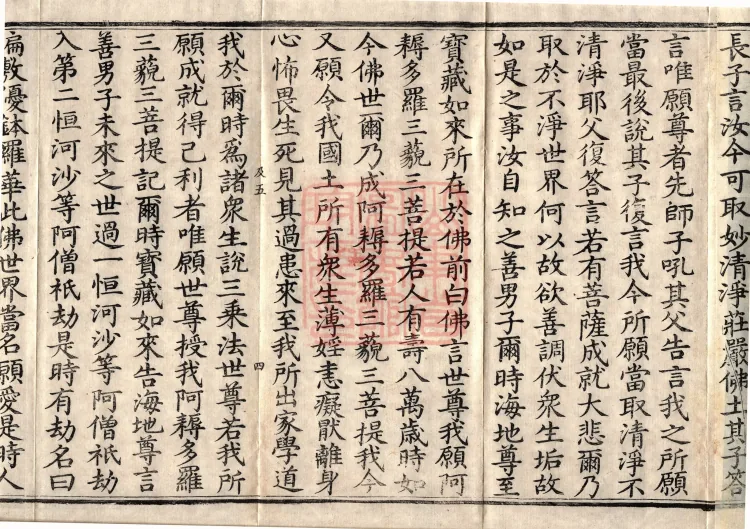 長子言汝今可取妙清淨莊嚴佛土其子荅
言唯願尊者先師子吼其父告言我之所願
當最後說其子復言我今所願當取清淨不
清淨耶父復荅言若有菩薩成就大悲爾乃
取於不淨世界何以故欲善調伏衆生垢故
如是之事汝自知之善男子爾時海地尊至
寶藏如來所在於佛前白佛言世尊我願阿
耨多羅三藐三菩提若人有壽八萬歲時如
今佛世爾乃成阿耨多羅三藐三菩提我今
又願令我國土所有衆生薄婬恚癡猒離身
心怖畏生死見其過患來至我所出家學道
及五
四
我於爾時爲諸衆生說三乗法世尊若我所
願成就得己利者唯願世尊授我阿耨多羅
三藐三菩提記爾時寶藏如來告海地尊言
善男子未來之世過一恒河沙等阿僧祇劫
入第二恒河沙等阿僧祇劫是時有劫名曰
徧敷優鉢羅華此佛世界當名願愛是時人